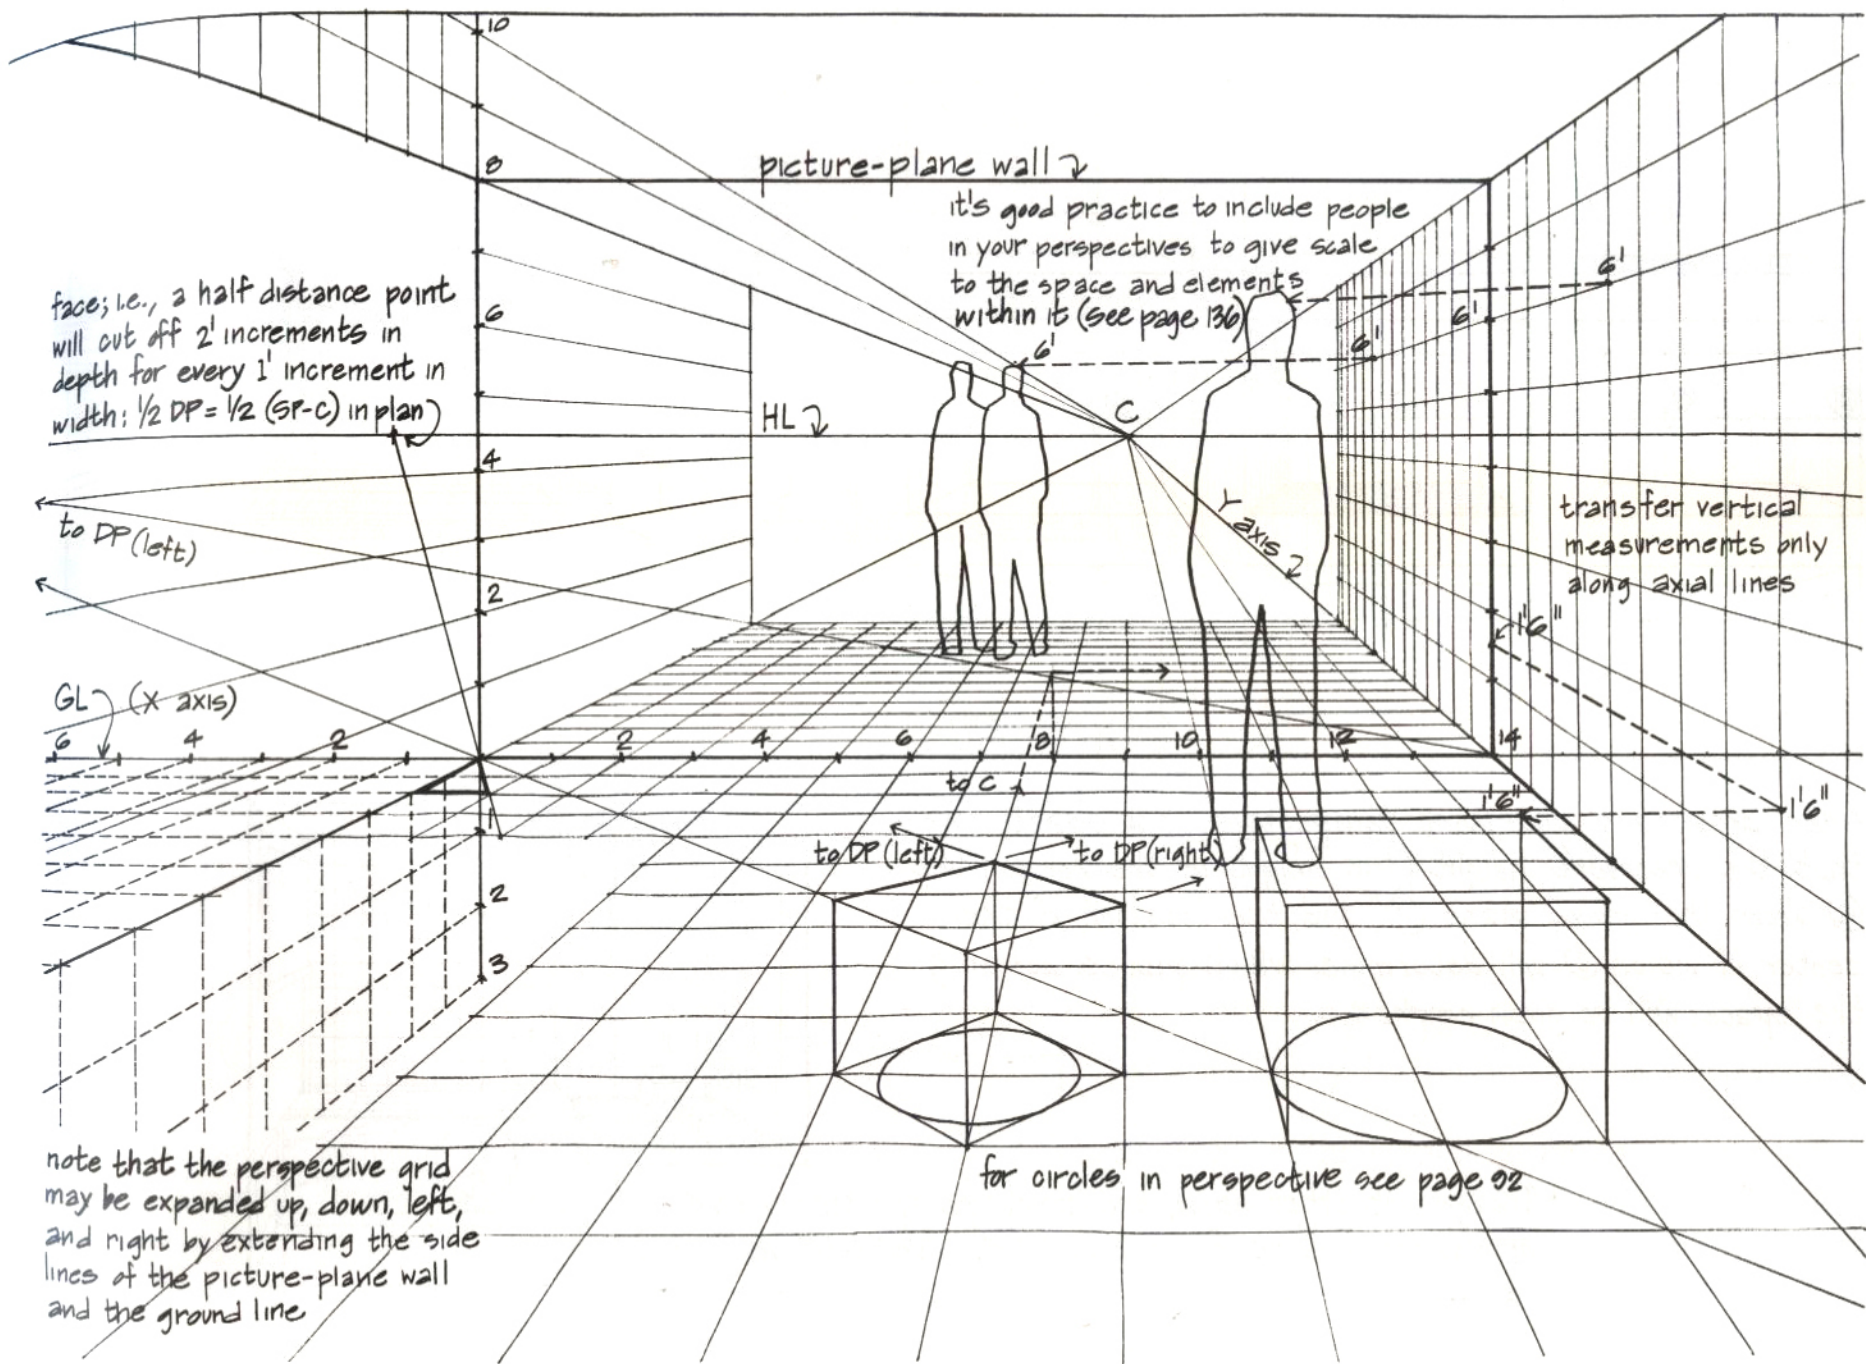 10
8
picture-plane wall
it's good practice to include people
in your perspectives to give scale
to the space and elements
within it (see page 136)
6'
6'
6'
6'
face; i.e., a half distance point
will cut off 2' increments in
depth for every 1' increment in
width: 1/2 DP = 1/2 (SP-C) in plan
6
HL
C
4
Y axis
transfer vertical
measurements only
along axial lines
to DP (left)
2
1'6"
GL (X axis)
6 4 2 2 4 6 8 10 12 14
to C
1'6"
1'6"
1
to DP (left)
to DP (right)
2
3
note that the perspective grid
may be expanded up, down, left,
and right by extending the side
lines of the picture-plane wall
and the ground line
for circles in perspective see page 92